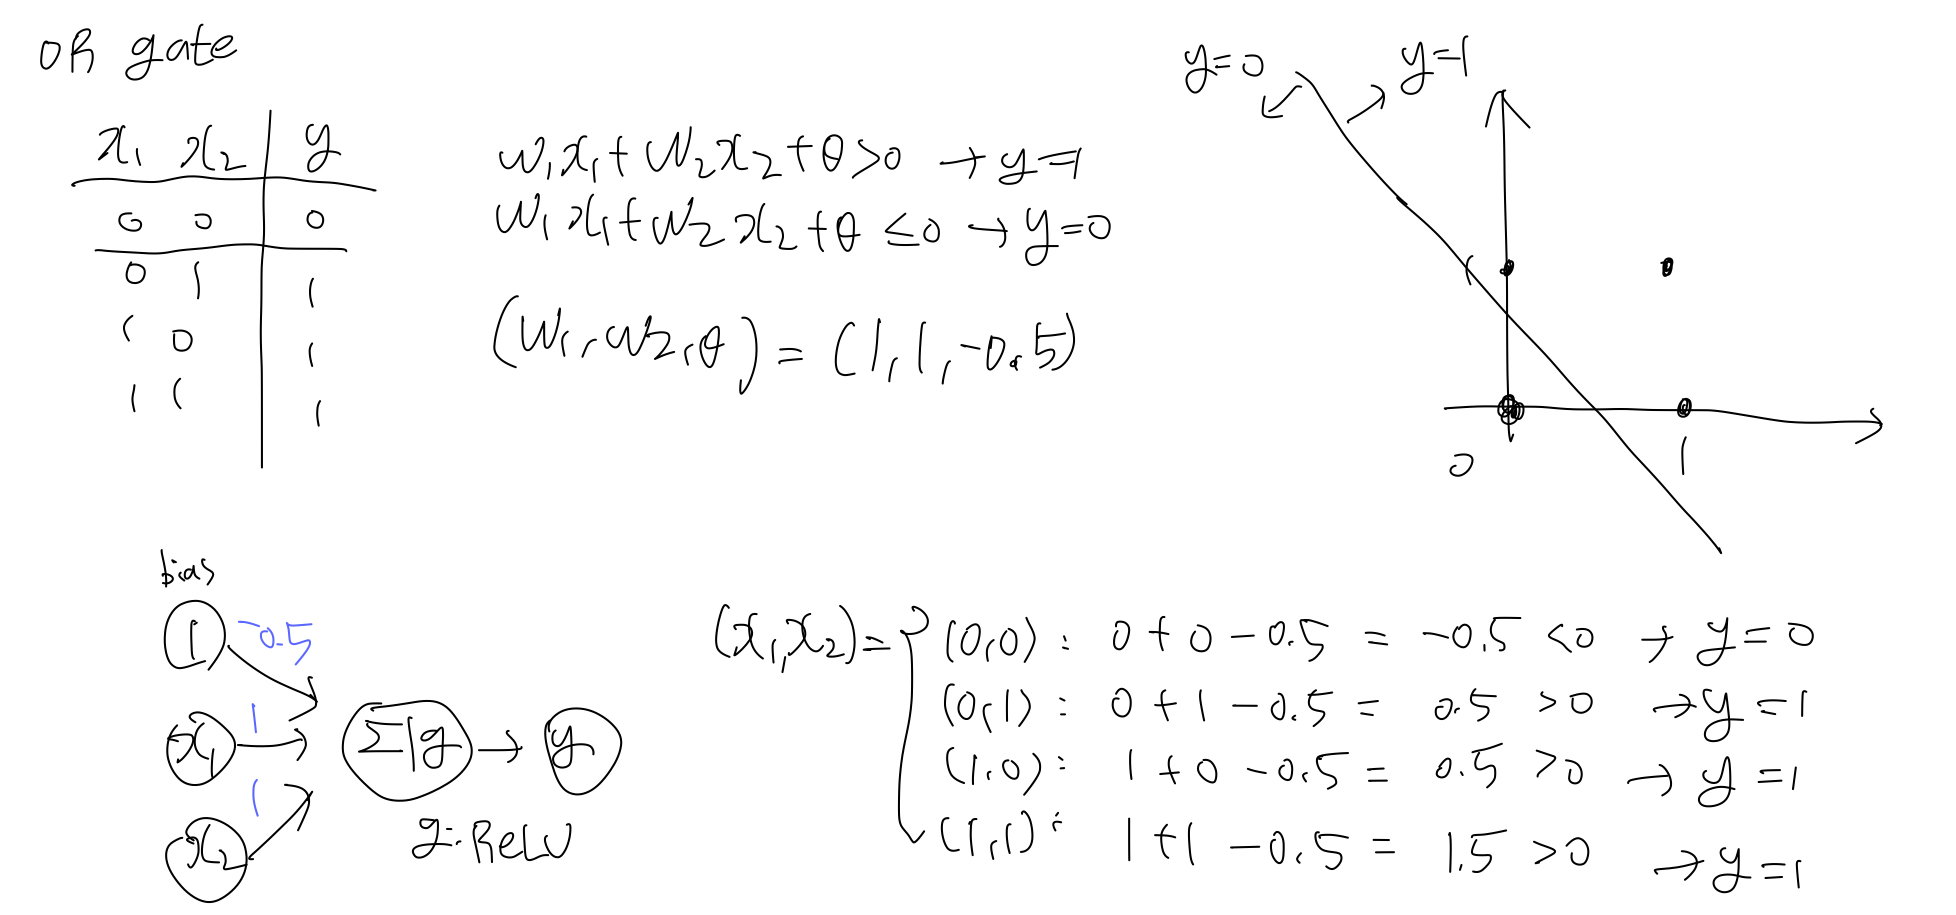 OR gate
x₁ x₂ y
0 0 0
0 1 1
1 0 1
1 1 1
w₁x₁+w₂x₂+θ>0 → y=1
w₁x₁+w₂x₂+θ ≤0 → y=0
(w₁, w₂, θ) = (1, 1, -0.5)
y=0 y=1
1
0 1
bias
1 -0.5
x₁ 1
Σ|g → y
x₂ 1
g: ReLU
(x₁, x₂) = { (0,0) : 0 + 0 - 0.5 = -0.5 <0 → y = 0
(0,1) : 0 + 1 - 0.5 = 0.5 >0 → y = 1
(1,0) : 1 + 0 - 0.5 = 0.5 >0 → y = 1
(1,1) : 1 + 1 - 0.5 = 1.5 >0 → y = 1